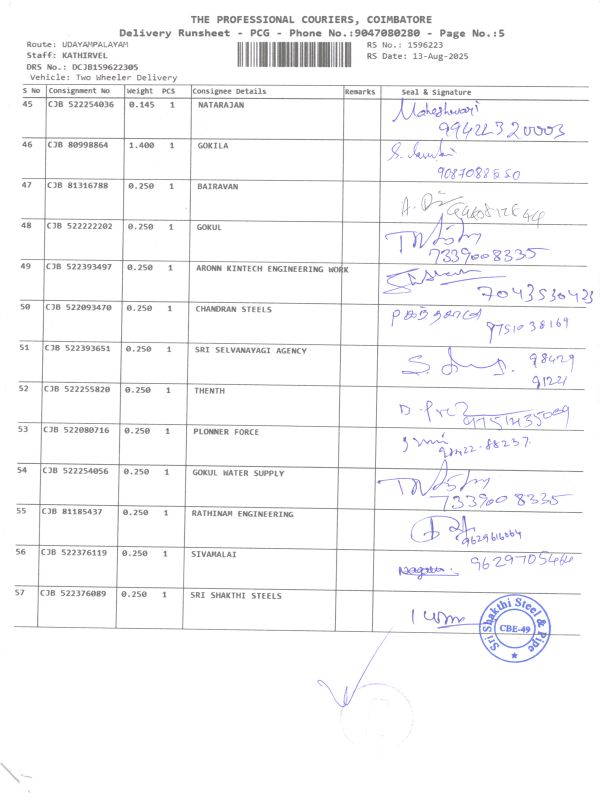 THE PROFESSIONAL COURIERS, COIMBATORE
Delivery Runsheet - PCG - Phone No.:9047080280 - Page No.:5
Route: UDAYAMPALAYAM RS No.: 1596223
Staff: KATHIRVEL RS Date: 13-Aug-2025
DRS No.: DCJB159622305
Vehicle: Two Wheeler Delivery
S No Consignment No Weight PCS Consignee Details Remarks Seal & Signature
45 CJB 522254036 0.145 1 NATARAJAN Maheshwari
9942232 0003
46 CJB 80998864 1.400 1 GOKILA
9087088550
47 CJB 81316788 0.250 1 BAIRAVAN
48 CJB 522222202 0.250 1 GOKUL
7339008335
49 CJB 522393497 0.250 1 ARONN KINTECH ENGINEERING WORK
7043530423
50 CJB 522093470 0.250 1 CHANDRAN STEELS
9751038169
51 CJB 522393651 0.250 1 SRI SELVANAYAGI AGENCY 98429
91221
52 CJB 522255820 0.250 1 THENTH
9751435009
53 CJB 522080716 0.250 1 PLONNER FORCE
98422-88237.
54 CJB 522254056 0.250 1 GOKUL WATER SUPPLY
7339008335
55 CJB 81185437 0.250 1 RATHINAM ENGINEERING
9629616064
56 CJB 522376119 0.250 1 SIVAMALAI 9629705464
57 CJB 522376089 0.250 1 SRI SHAKTHI STEELS
Sri Shakthi Steel & Pipe
CBE-49